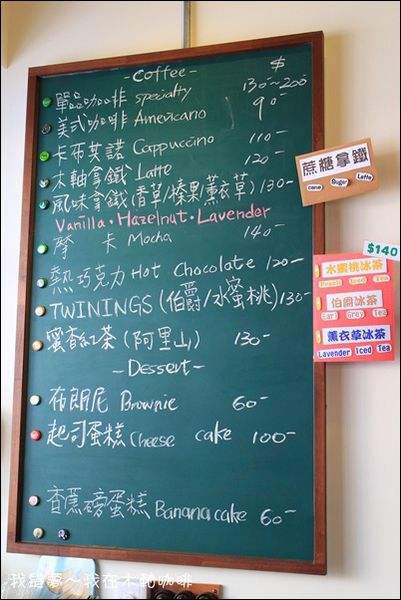 -Coffee-
$
單品咖啡 specialty 130-200
美式咖啡 Americano 90-
卡布其諾 Cappuccino 110-
木軸拿鐵 Latte 120-
風味拿鐵(香草/榛果/薰衣草)130-
Vanilla・Hazelnut・Lavender
摩 卡 Mocha 140-
熱巧克力 Hot Chocolate 120-
TWININGS(伯爵/水蜜桃)130-
蜜香紅茶(阿里山) 130-
-Dessert-
布朗尼 Brownie 60-
起司蛋糕 Cheese cake 100-
香蕉磅蛋糕 Banana cake 60-
蔗糖拿鐵
cane Sugar Latte
$140
水蜜桃冰茶
Peach Iced Tea
伯爵冰茶
Earl Grey Tea
薰衣草冰茶
Lavender Iced Tea